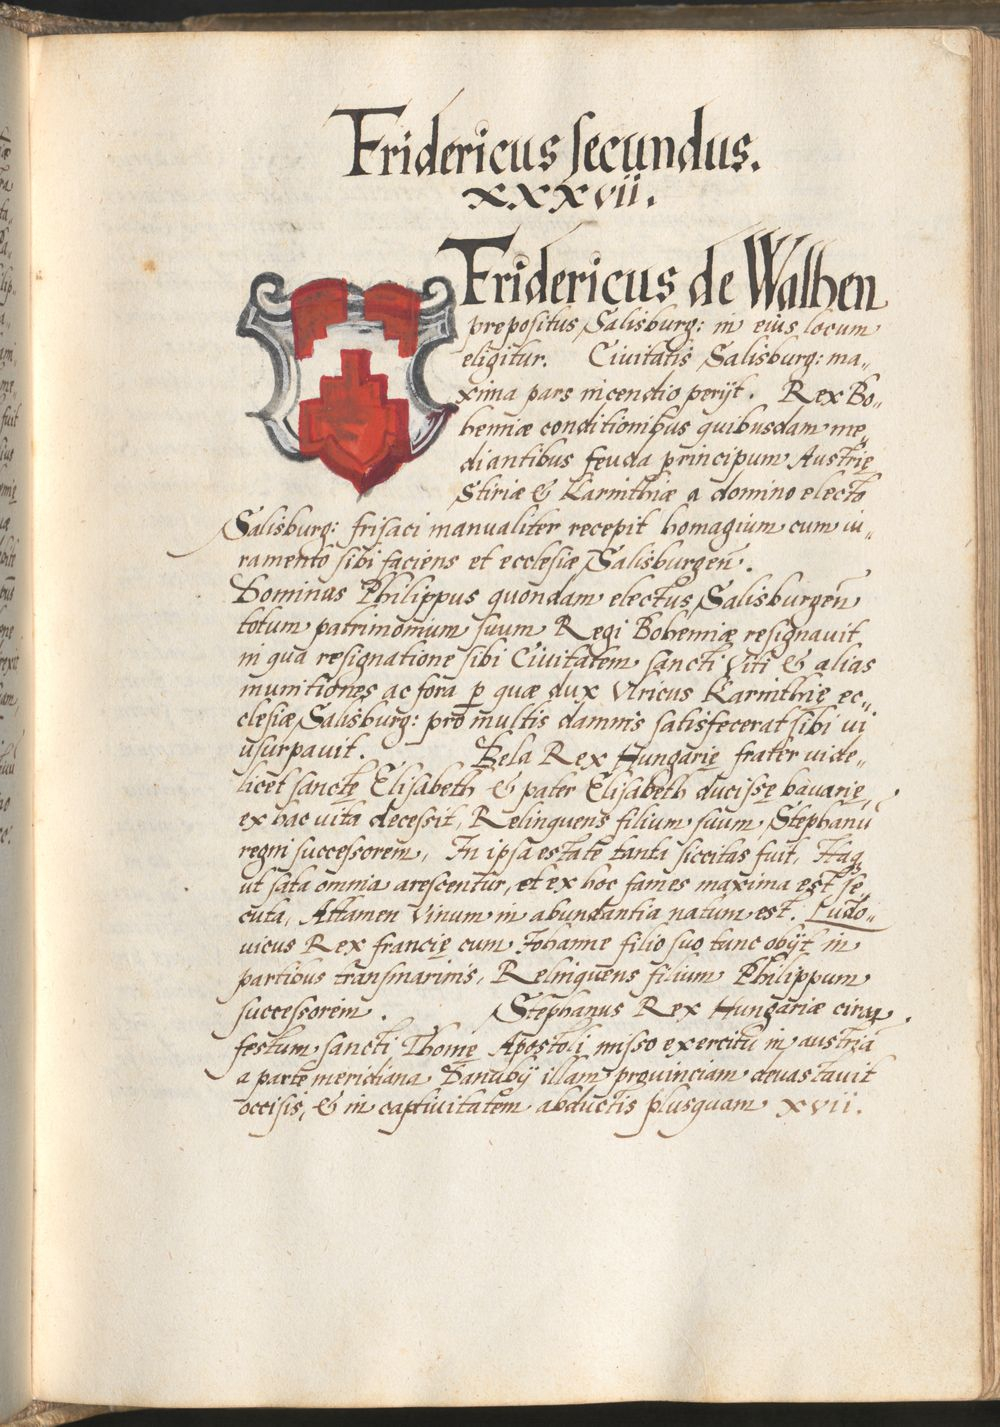 Fridericus secundus.
xxxvii.
Fridericus de Walhen
prepositus Salisburg: in eius locum
eligitur. Ciuitatis Salisburg: ma„
xima pars incendio perijt. Rex Bo„
hemiæ conditionibus quibusdam me„
diantibus feuda principum Austrię
Stiriæ & Karinthiæ a domino electo
Salisburg: frisaci manualiter recepit homagium cum iu„
ramento sibi faciens et ecclesiæ Salisburgen̄.
Dominus Philippus quondam electus Salisburgen̄
totum patrimonium suum Regi Bohemiæ resignauit,
in qua resignatione sibi Ciuitatem sancti Viti & alias
munitiones ac fora ꝑ quæ dux Vlricus Karinthię ec„
clesiæ Salisburg: pro multis damnis satisfecerat sibi vi
usurpauit. Bela Rex Hungarię frater vide„
licet sanctę Elisabeth & pater Elisabeth ducissę bauarię,
ex hac vita decessit, Relinquens filium suum Stephanū
regni successorem, In ipsa estate tanta siccitas fuit, Itaq
ut sata omnia arescentur, et ex hoc fames maxima est se„
cuta, Attamen Vinum in abundantia natum est. Ludo„
uicus Rex francię cum Johanne filio suo tunc obijt in
partibus transmarinis, Relinquens filium Philippum
successorem. Stephanus Rex Hungariæ circa
festum sancti Thomę Apostoli misso exercitu in austria
a parte meridiana Danubij illam prouinciam deuastauit
occisis, & in captiuitatem abductis plusquam xvii.